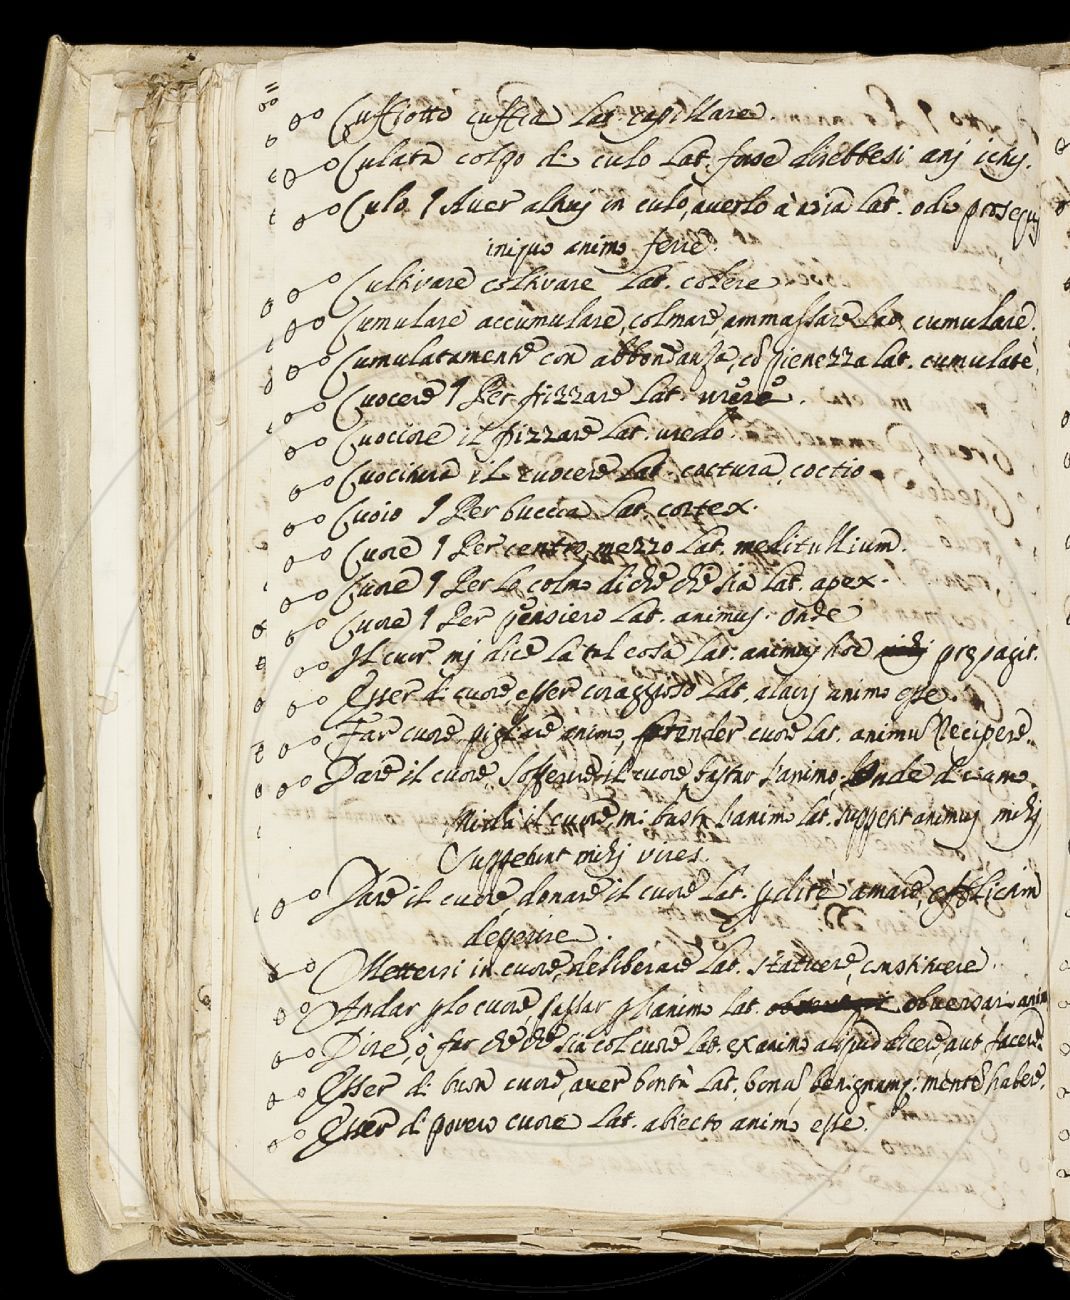 Cuffiotto cuffia Lat. capillare.
Culata colpo di culo Lat. forse direbbesi anj ictuj.
Culo ¶ Aver altruj in culo, averlo à noia Lat. odio prosequj
iniquo animo ferre.
Cultivare coltivare Lat. colere
Cumulare accumulare, colmare, ammassare Lat. cumulare.
Cumulatamente con abbondanza, cõ pienezza Lat. cumulate
Cuocere ¶ Per frizzare Lat. urere.
Cuociore il frizzare Lat. uredo.
Cuocitura il cuocere Lat. coctura, coctio
Cuoio ¶ Per buccia Lat. cortex.
Cuore ¶ Per centro, mezzo Lat. meditullium.
Cuore ¶ Per lo colmo di chè chè sia Lat. apex.
Cuore ¶ Per pensiero Lat. animuj. onde
Il cuor mj dice la tal cosa Lat. animuj hoc presagit.
Esser di cuore esser coraggioso Lat. alacrj animo esse.
Far cuore, pigliare animo, prender cuore Lat. animũ Recipere.
Dare il cuore Sofferire il cuore, bastar l'animo. Onde diciamo
Mi dà il cuore, mi basta l'animo Lat. suppetit animuj mihj,
Suppetunt mihj vires.
Dare il cuore donare il cuore Lat. amare,
deperire.
Mettersi in cuore, deliberare Lat. statuere constituere.
Andar p lo cuore, passar p l'animo Lat. obversari anim
Dire, ò far chè chè sia col cuore Lat. ex animo aliquid dicere aut facere.
Esser di buon cuore, aver bontà Lat. bonã, benignamq; mente habere.
Esser di povero cuore Lat. abiecto animo esse.